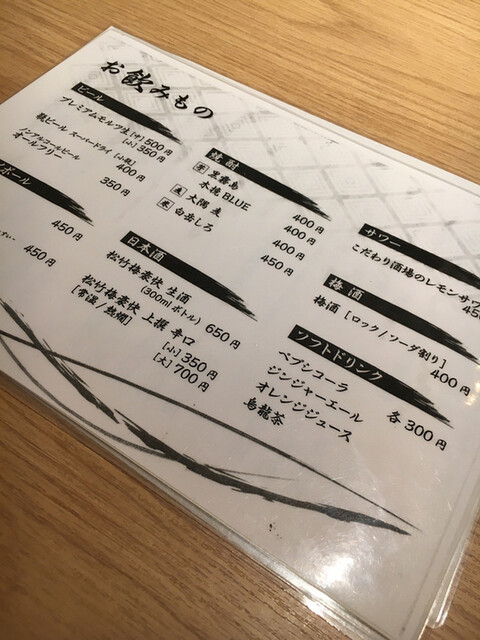 お飲みもの
ビール
プレミアムモルツ生[中]500円
[小]350円
瓶ビール スーパードライ [小瓶]
400円
ノンアルコールビール
オールフリー
350円
ボール
450円
450円
焼酎
芋 黒霧島 400円
木挽BLUE 400円
麦 大隅 麦 400円
米 白岳しろ 450円
日本酒
松竹梅豪快 生酒
(300mlボトル) 650円
松竹梅豪快 上撰 辛口
[常温/熱燗]
[小]350円
[大]700円
サワー
こだわり酒場のレモンサワ
450
梅酒
梅酒[ロック/ソーダ割り]
400円
ソフトドリンク
ペプシコーラ
ジンジャーエール
オレンジジュース
烏龍茶
各300円